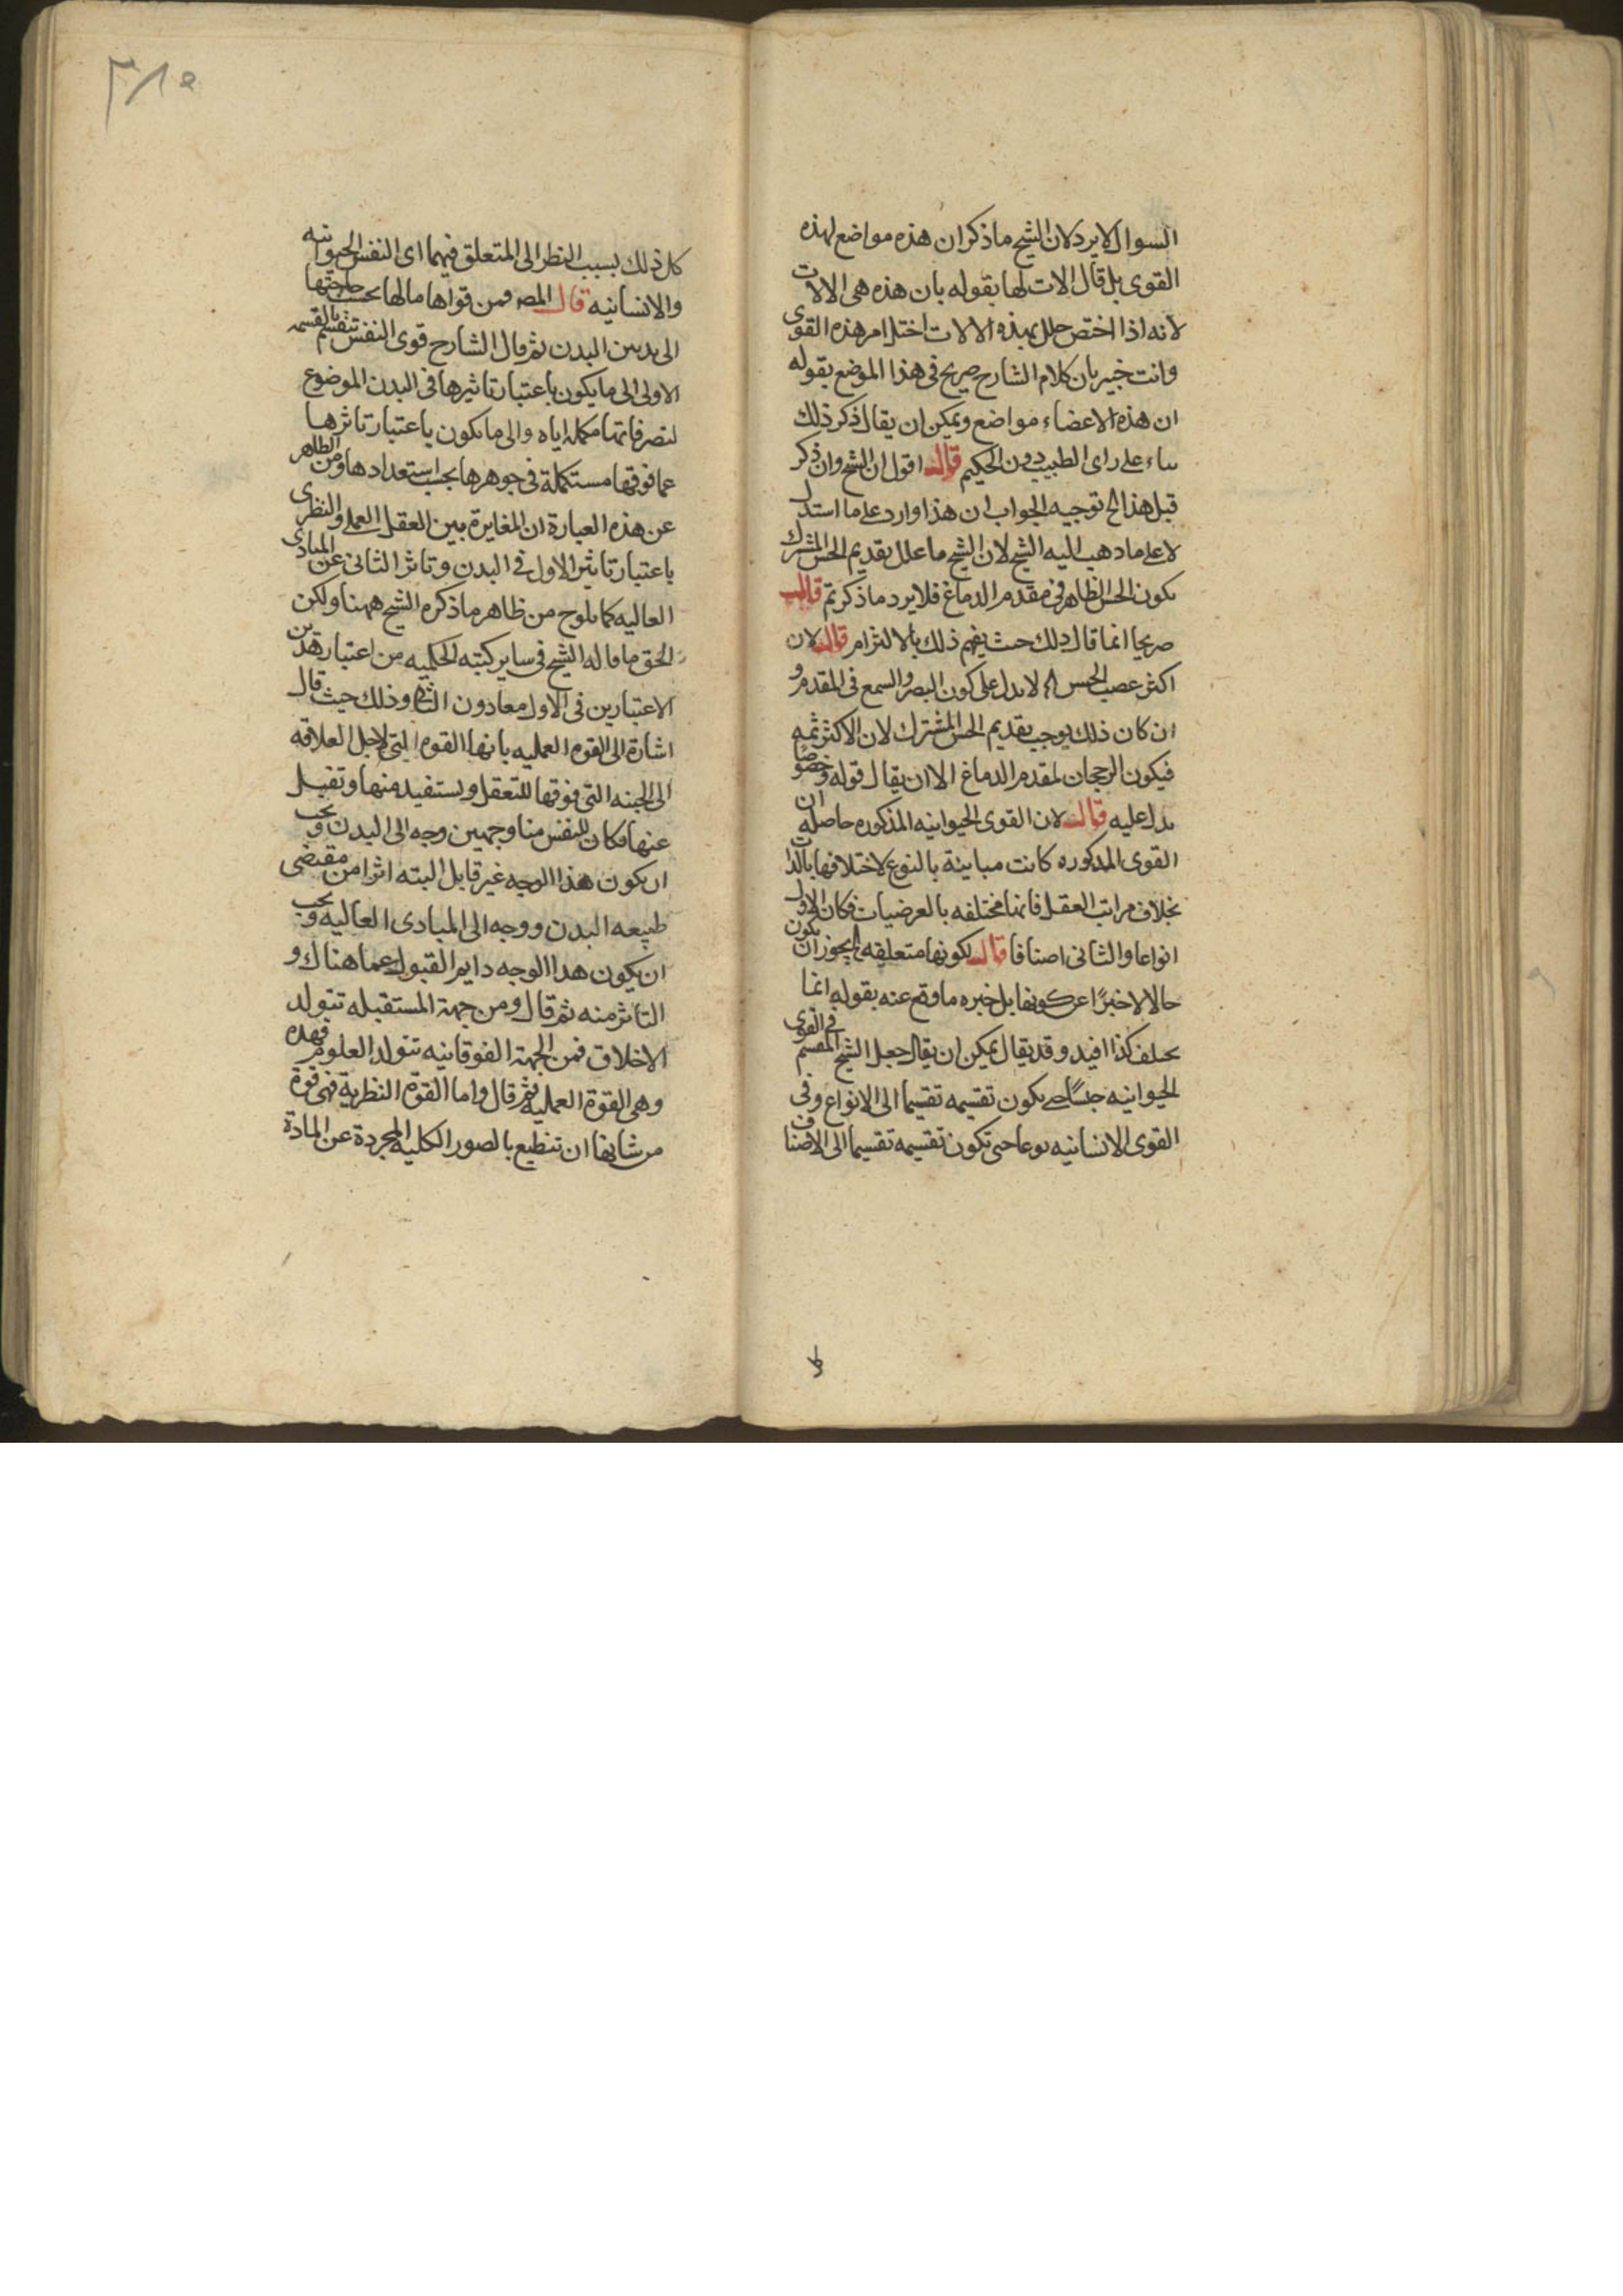 السوال لا يرد لان الشيخ ما ذكر ان هذه مواضع لهذه
القوى بل قال الات لها بقوله بان هذه هى الالات
لانه اذا اختص خلل بهذه الالات اختل امر هذه القوى
وانت خبير بان كلام الشارح صريح فى هذا الموضع بقوله
ان هذه الاعضاء مواضع ويمكن ان يقال ذكر ذلك
بناء على راى الطبيب دون الحكيم قال اقول ان الشيخ وان ذكر
قبل هذا الخ توجيه الجواب ان هذا وارد على ما استدل
لا على ما ذهب اليه الشيخ لان الشيخ ما علل بتقديم الحس المشترك
بكون الحس الظاهر فى مقدم الدماغ فلا يرد ما ذكرتم قال
صريحا انما قال ذلك حيث يفهم ذلك بالالتزام قال لان
اكثر عصب الحس لا يدل على كون البصر والسمع فى المقدم و
ان كان ذلك يوجب تقديم الحس المشترك لان الاكثر ثمه
فيكون الرجحان لمقدم الدماغ الا ان يقال قوله وخصوصا
يدل عليه قال لان القوى الحيوانيه المذكوره حاصله ان
القوى المذكوره كانت مباينة بالنوع لاختلافها بالذات
بخلاف مراتب العقل فانها مختلفه بالعرضيات فكان الاول
انواعا والثانى اصنافا قال لكونها متعلقه يجوز ان يكون
حالا لا خبرًا عن كونها بل خبره ما وقع عنه بقوله انما
يختلف كذا افيد وقد يقال يمكن ان يقال جعل الشيخ المقسم فى القوى
الحيوانيه جنسًا حتى يكون تقسيمه تقسيما الى الانواع وفى
القوى الانسانيه نوعا حتى تكون تقسيمه تقسيما الى الاصناف
٣٨٥
كل ذلك بسبب النظر الى المتعلق فيهما اى النفس الحيوانيه
والانسانيه قال المصر فمن قواها ما لها بحسب حاجتها
الى تدبير البدن ثم قال الشارح قوى النفس تنقسم بالقسمه
الاولى الى ما يكون باعتبار تاثيرها فى البدن الموضوع
لتصرفاتها مكملة اياه والى ما يكون باعتبار تاثرها
عما فوقها مستكملة فى جوهرها بحسب استعدادها ومن الظاهر
عن هذه العبارة ان المغايرة بين العقل العملى والنظرى
باعتبار تاثير الاول فى البدن وتاثر الثانى عن المبادى
العاليه كما يلوح من ظاهر ما ذكره الشيخ ههنا ولكن
الحق ما قاله الشيخ فى ساير كتبه الحكميه من اعتبار هذين
الاعتبارين فى الاول معا دون الثانى وذلك حيث قال
اشارة الى القوه العمليه بانها القوه التى لاجل العلاقه
الى الجنبه التى فوقها للتعقل ويستفيد منها وتقبل
عنها فكان للنفس منا وجهين وجه الى البدن ويجب
ان يكون هذا الوجه غير قابل البته اثرا من مقتضى
طبيعه البدن ووجه الى المبادى العاليه ويجب
ان يكون هذا الوجه دايم القبول عما هناك و
التاثر منه ثم قال ومن جهة المستقبله تتولد
الاخلاق فمن الجهة الفوقانيه تتولد العلوم فهذه
وهى القوة العمليه ثم قال واما القوة النظرية فهى قوة
من شانها ان تنطبع بالصور الكليه المجردة عن المادة